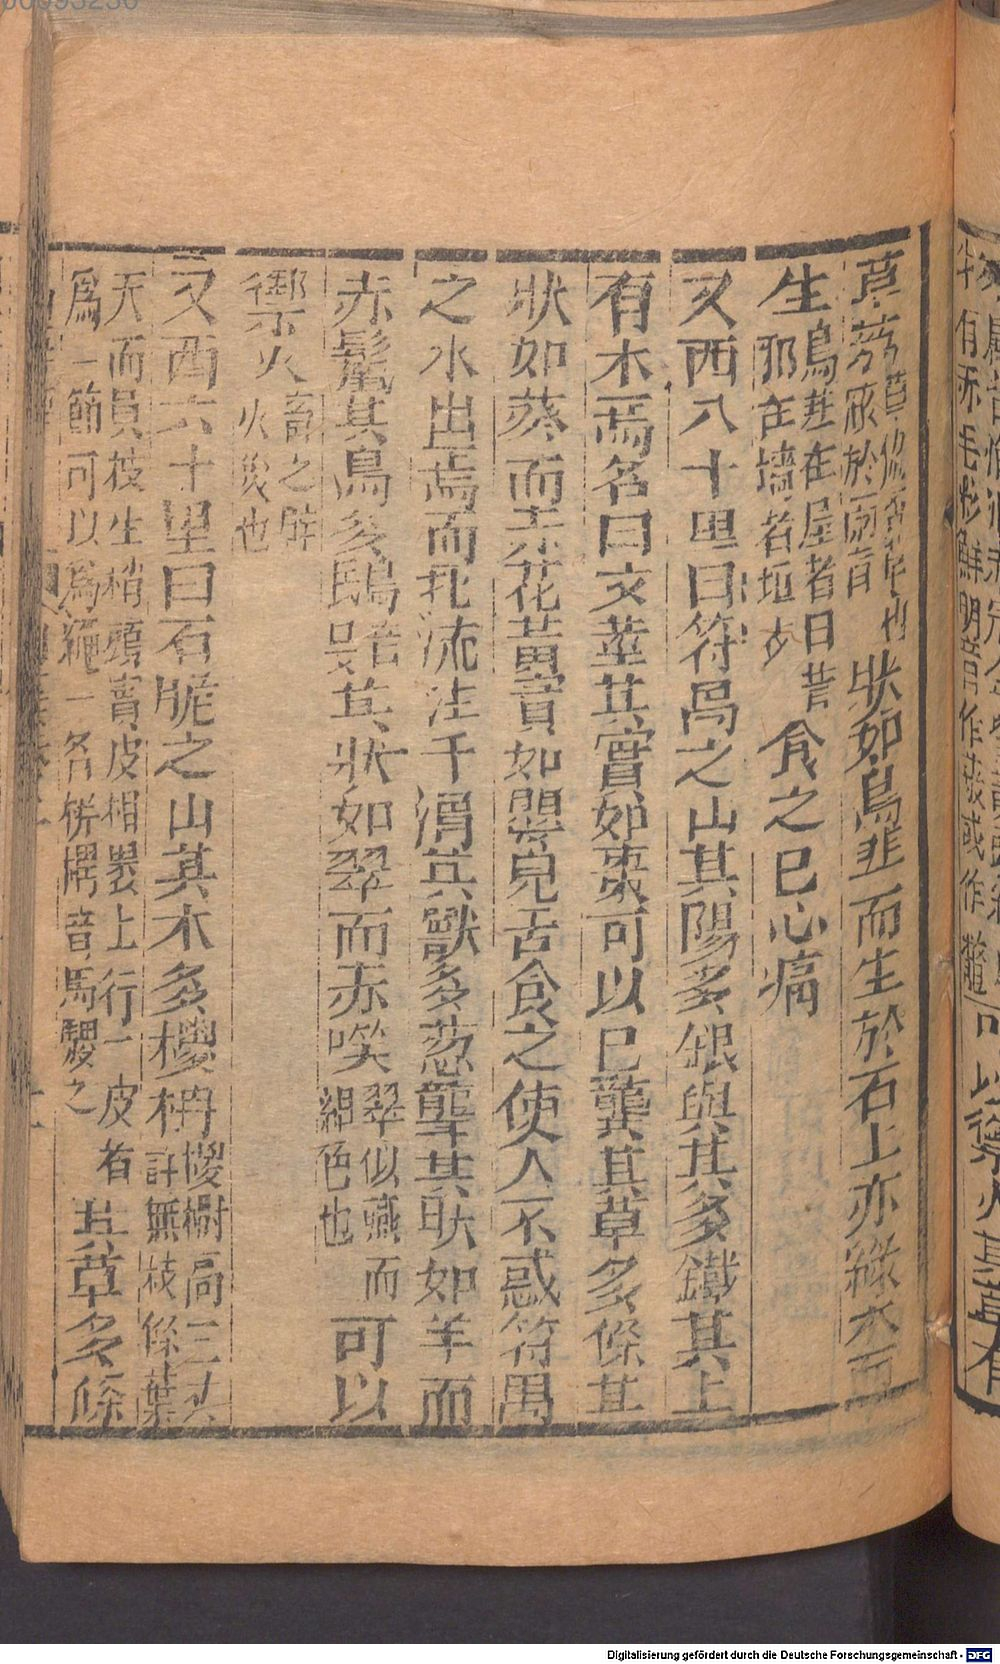 萆荔萆荔香草也狀如烏韭而生於石上亦緣木而
生烏韭在屋者曰昔邪在墻者垣衣食之已心痛
又西八十里曰符禺之山其陽多銀與其多鐵其上
有木焉名曰文莖其實如棗可以已聾其草多條其
狀如葵而赤花黃實如嬰兒舌食之使人不惑符禺
之水出焉而北流注于渭其獸多葱聾其狀如羊而
赤鬣其鳥多鴖音旻其狀如翠而赤喙翠似燕而紺色也可以
禦火畜之辟火災也
又西六十里曰石脆之山其木多椶枏椶樹高三丈許無枝條葉
大而員枝生梢頭實皮相裹上行一皮者為一節可以為繩一名栟櫚音馬騣之其草多條
Digitalisierung gefördert durch die Deutsche Forschungsgemeinschaft - DFG